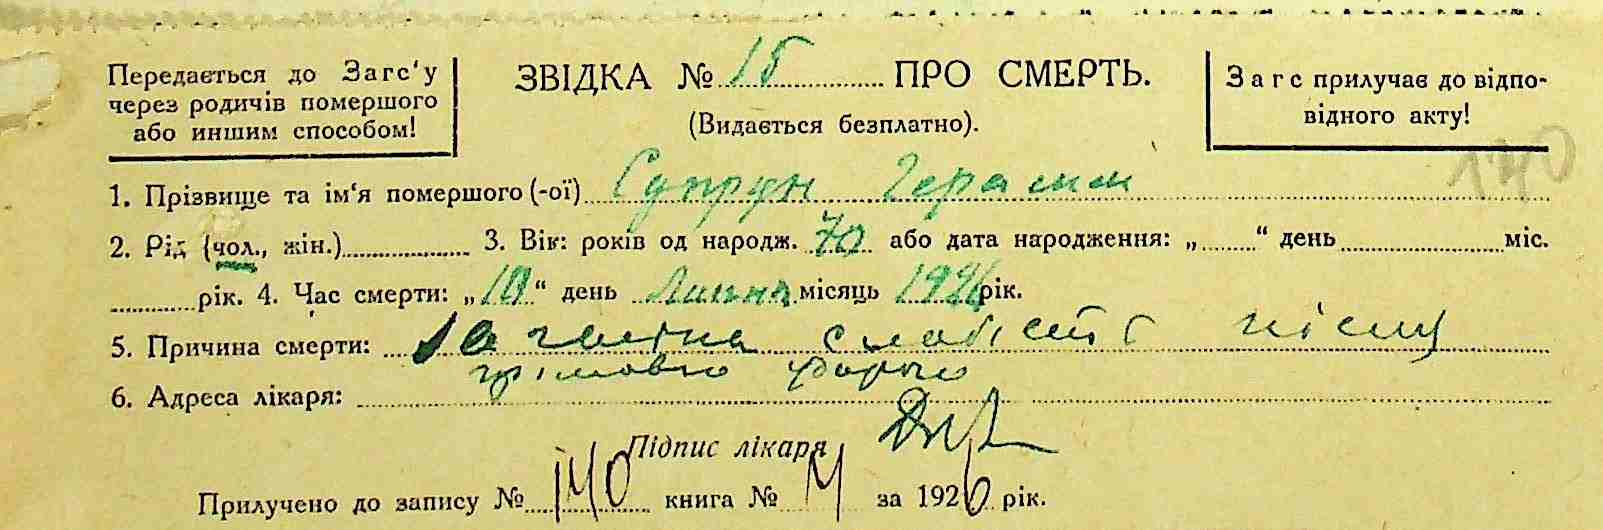 Передається до Загс‘у
через родичів помершого
або иншим способом!
ЗВІДКА № 15 ПРО СМЕРТЬ.
(Видається безплатно).
Загс прилучає до відпо-
відного акту!
140
1. Прізвище та ім‘я помершого (-ої) Супрун Герасим
2. Рід (чол., жін.) 3. Вік: років од народж. 70 або дата народження: „ “ день міс.
рік. 4. Час смерти: „10“ день Липня місяць 1926 рік.
5. Причина смерти: слабість
6. Адреса лікаря:
Підпис лікаря
Прилучено до запису № 140 книга № за 1926 рік.